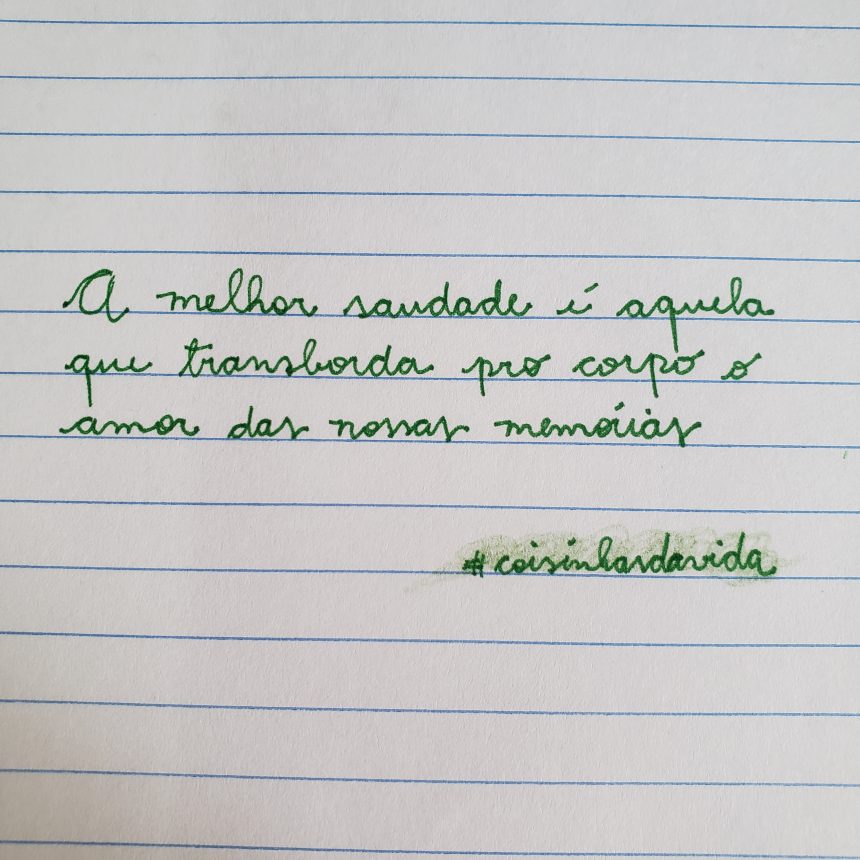 A melhor saudade é aquela
que transborda pro corpo o
amor das nossas memórias
#coisinhasdavida